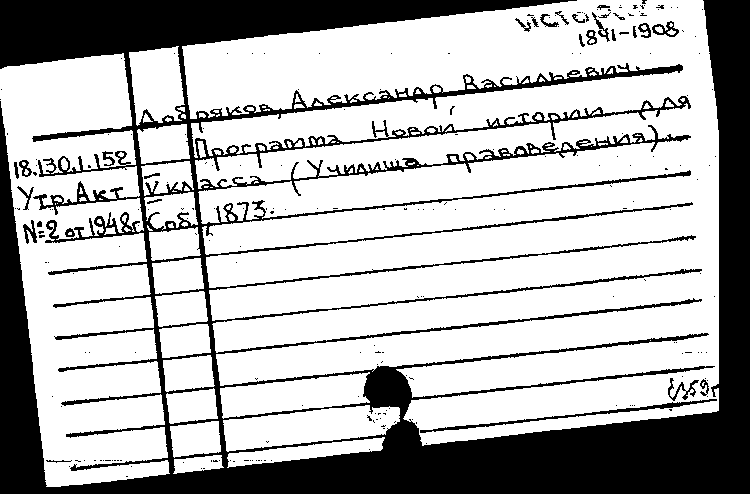 История
1841-1908
Добряков, Александр Васильевич.
18.130.1.152 Программа Новой истории для
Утр. Акт V класса (Училища правоведения).
№2 от 1948г. Спб., 1873.